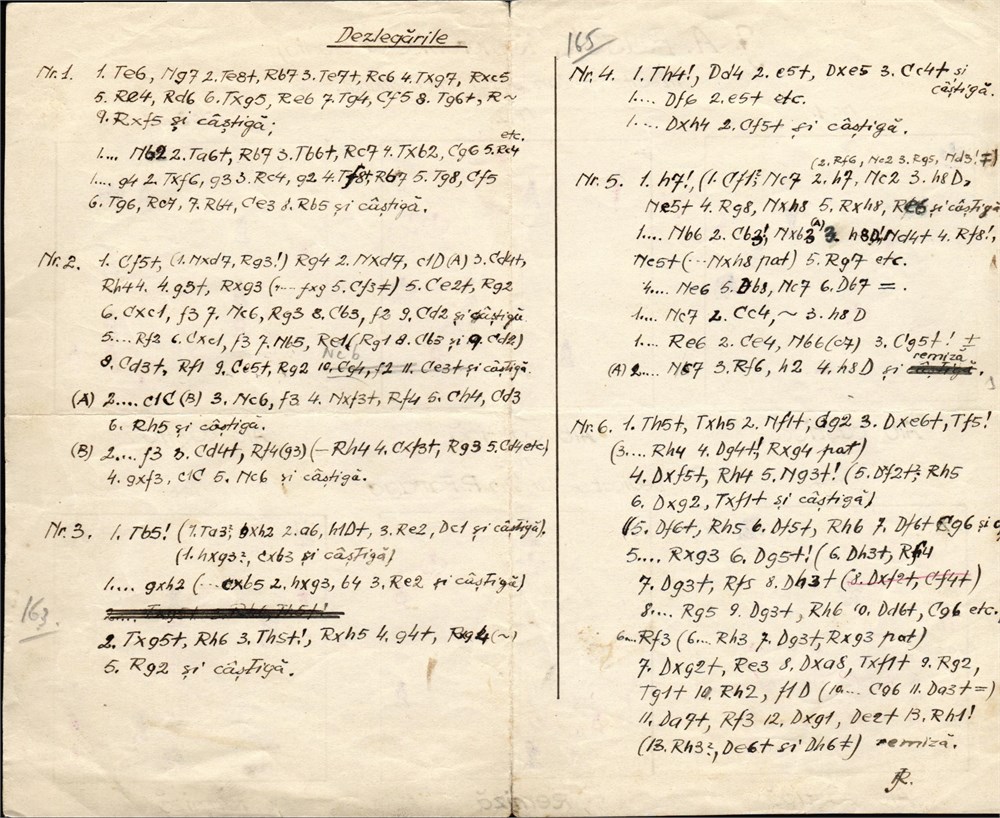 Dezlegările
Nr. 1. 1. Te6, Ng7 2. Te8+, Rb7 3. Te7+, Rc6 4. Txg7, Rxc5
5. Re4, Rd6 6. Txg5, Re6 7. Tg4, Cf5 8. Tg6+, R~
9. Rxf5 și câștigă;
1.... Nb2 2. Ta6+, Rb7 3. Tb6+, Rc7 4. Txb2, Cg6 5. Rc4 etc.
1.... g4 2. Txf6, g3 3. Rc4, g2 4. Tf8+, Rb7 5. Tg8, Cf5
6. Tg6, Rc7, 7. Rb4, Ce3 8. Rb5 și câștigă.
Nr. 2. 1. Cf5+, (1. Nxd7, Rg3!) Rg4 2. Nxd7, c1D (A) 3. Cd4+,
Rh4 4. g3+, Rxg3 (.... fxg 5. Cf3≠) 5. Ce2+, Rg2
6. Cxc1, f3 7. Nc6, Rg3 8. Cb3, f2 9. Cd2 și câștigă
5.... Rf2 6. Cxc1, f3 7. Nb5, Re1 (Rg1 8. Cb3 și 9. Cd2)
8. Cd3+, Rf1 9. Ce5+, Rg2 10. Nc6 și câștigă.
(A) 2.... c1C (B) 3. Nc6, f3 4. Nxf3+, Rf4 5. Ch4, Cd3
6. Rh5 și câștigă.
(B) 2.... f3 3. Cd4+, Rf4 (g3) (— Rh4 4. Cxf3+, Rg3 5. Cd4 etc)
4. gxf3, c1C 5. Nc6 și câștigă.
Nr. 3. 1. Tb5! (1. Ta3?, gxh2 2. a6, h1D+, 3. Re2, Dc1 și câștigă).
(1. hxg3?, cxb3 și câștigă)
1.... gxh2 (... cxb5 2. hxg3, b4 3. Re2 și câștigă)
163.
2. Txg5+, Rh6 3. Th5+!, Rxh5 4. g4+, Rxg4 (~)
5. Rg2 și câștigă.
165
Nr. 4. 1. Th4!, Dd4 2. e5+, Dxe5 3. Cc4+ și câștigă.
1.... Df6 2. e5+ etc.
1.... Dxh4 2. Cf5+ și câștigă.
(2. Rf6, Nc2 3. Rg5, Nd3! ∓)
Nr. 5. 1. h7!, (1. Cf1?, Nc7 2. h7, Nc2 3. h8D,
Ne5+ 4. Rg8, Nxh8 5. Rxh8, Re6 și câștigă
1.... Nb6 2. Cb3!, Nxb3 (A) 3. h8D!, Nd4+ 4. Rf8!,
Ne5+ (... Nxh8 pat) 5. Rg7 etc.
4.... Ne6 5. Db8, Nc7 6. Db7 =.
1.... Nc7 2. Cc4, ~ 3. h8D
1.... Re6 2. Ce4, Nb6 (c7) 3. Cg5+! ±
(A) 2.... Nc7 3. Rf6, h2 4. h8D și remiză.
Nr. 6. 1. Th5+, Txh5 2. Nf1+, Cg2 3. Dxe6+, Tf5!
(3.... Rh4 4. Dg4+!, Rxg4 pat)
4. Dxf5+, Rh4 5. Ng3+! (5. Df2+?, Rh5
6. Dxg2, Txf1+ și câștigă)
(5. Df6+, Rh5 6. Df5+, Rh6 7. Df6+ Cg6 și
5.... Rxg3 6. Dg5+! (6. Dh3+, Rf4
7. Dg3+, Rf5 8. Dh3+ (8. Dxf2+, Cf4+)
8... Rg5 9. Dg3+, Rh6 10. Dd6+, Cg6 etc.
6... Rf3 (6... Rh3, 7. Dg3+, Rxg3 pat)
7. Dxg2+, Re3 8. Dxa8, Txf1+ 9. Rg2,
Tg1+ 10. Rh2, f1D (10.... Cg6 11. Da3+ =)
11. Da7+, Rf3 12. Dxg1, De2+ 13. Rh1!
(13. Rh3?, De6+ și Dh6≠) remiză.